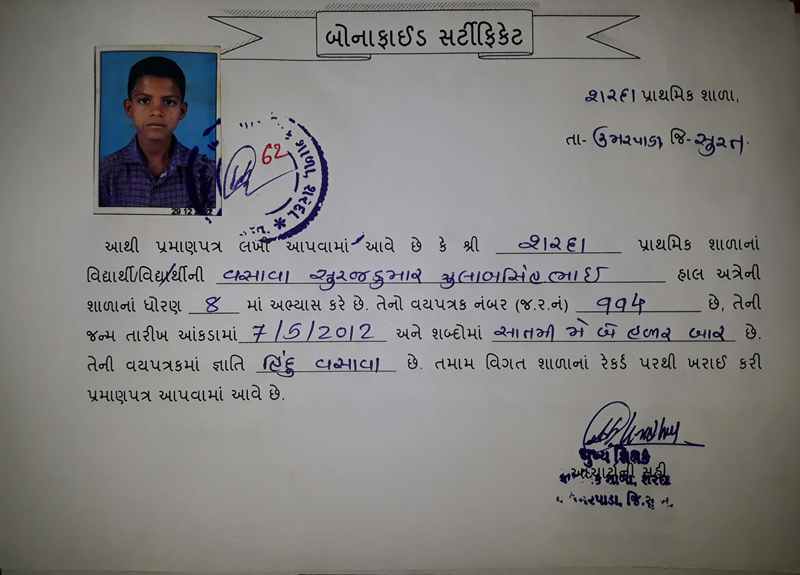 બોનાફાઈડ સર્ટીફિકેટ
શરદા પ્રાથમિક શાળા,
તા- ઉમરપાડા, જિ- સુરત.
62
આથી પ્રમાણપત્ર લખી આપવામાં આવે છે કે શ્રી શરદા પ્રાથમિક શાળાનાં
વિદ્યાર્થી/વિદ્યાર્થીની વસાવા સુરજકુમાર ગુલાબસિંહભાઈ હાલ અત્રેની
શાળાનાં ધોરણ 8 માં અભ્યાસ કરે છે. તેનો વયપત્રક નંબર (જ.ર.નં) ૧૧૫ છે, તેની
જન્મ તારીખ આંકડામાં 7/5/2012 અને શબ્દોમાં સાતમી મે બે હજાર બાર છે.
તેની વયપત્રકમાં જ્ઞાતિ હિંદુ વસાવા છે. તમામ વિગત શાળાનાં રેકર્ડ પરથી ખરાઈ કરી
પ્રમાણપત્ર આપવામાં આવે છે.
મુખ્ય શિક્ષક
આચાર્યની સહી
શાળા, શરદા
ઉમરપાડા, જિ.સુરત.